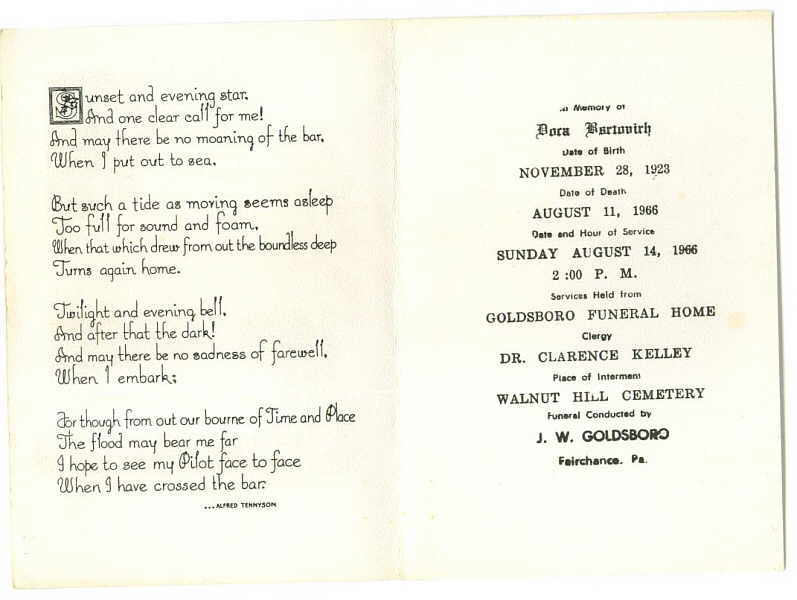 Sunset and evening star,
And one clear call for me!
And may there be no moaning of the bar,
When I put out to sea,
But such a tide as moving seems asleep
Too full for sound and foam,
When that which drew from out the boundless deep
Turns again home.
Twilight and evening bell,
And after that the dark!
And may there be no sadness of farewell,
When I embark;
For though from out our bourne of Time and Place
The flood may bear me far
I hope to see my Pilot face to face
When I have crossed the bar.
...ALFRED TENNYSON
In Memory of
Dora Bartovich
Date of Birth
NOVEMBER 28, 1923
Date of Death
AUGUST 11, 1966
Date and Hour of Service
SUNDAY AUGUST 14, 1966
2:00 P. M.
Services Held from
GOLDSBORO FUNERAL HOME
Clergy
DR. CLARENCE KELLEY
Place of Interment
WALNUT HILL CEMETERY
Funeral Conducted by
J. W. GOLDSBORO
Fairchance, Pa.